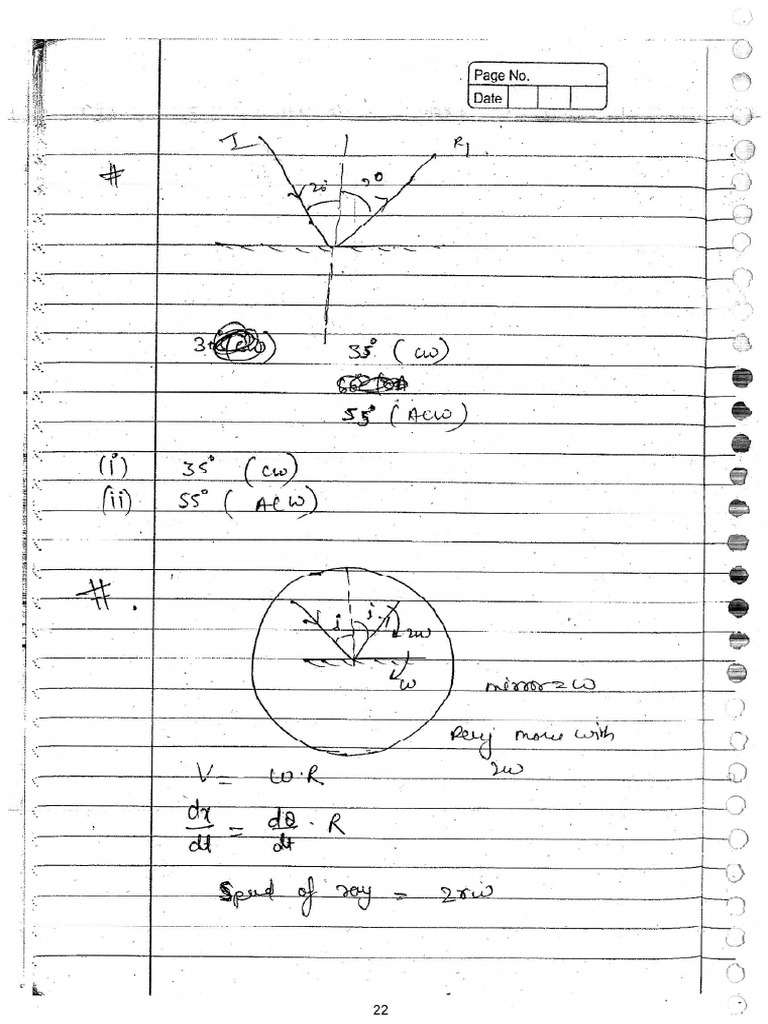 Page No.
Date
#
I
R1
20°
20
35° (CW)
55° (ACW)
(i) 35° (CW)
(ii) 55° (ACW)
#.
i
i
2ω
ω
mirror = ω
Ray move with
2ω
V = ω·R
dx/dt = dθ/dt · R
Speed of ray = 2rω
22